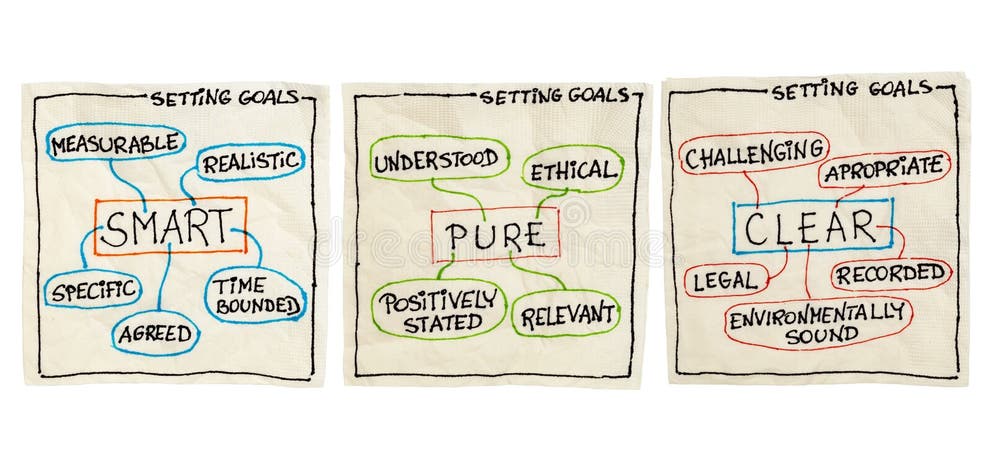 SETTING GOALS
MEASURABLE
REALISTIC
SMART
SPECIFIC
TIME
BOUNDED
AGREED
SETTING GOALS
UNDERSTOOD
ETHICAL
PURE
POSITIVELY
STATED
RELEVANT
SETTING GOALS
CHALLENGING
APROPRIATE
CLEAR
LEGAL
RECORDED
ENVIRONMENTALLY
SOUND
dreamstime
dreamstime
dreamstime